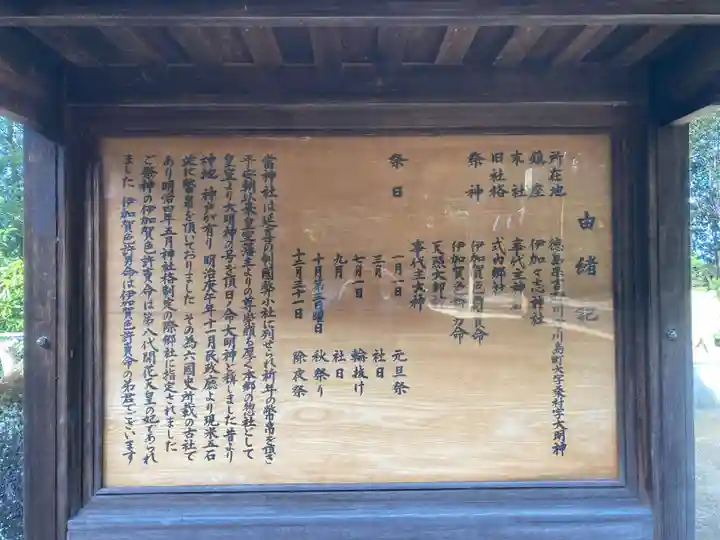 由緒記
所在地 徳島県吉野川市川島町大字桑村字大明神
鎮座 伊加々志神社
末社 事代主神社
旧社格 式内郷社
祭神 伊加賀色許賣命
伊加賀色許男命
天照大御神
事代主大神
祭日 一月一日 元旦祭
三月 社日
七月一日 輪抜け
九月 社日
十月第三日曜日 秋祭り
十二月三十一日 除夜祭
當神社は延喜の制國幣小社に列せられ祈年の幣帛を頂き
平安朝以来皇室藩主よりの尊崇頗る厚く本郷の惣社として
皇室より大明神の号を頂日ノ命大明神と称しました昔より
神地 神戸が有り 明治庚午年十一月民政廳より現米五石
並に幣帛を頂いておりました その為六國史所載の古社で
あり明治四年五月神社格制定の際郷社に指定されました
ご祭神の伊加賀色許賣命は第八代開花天皇の妃であられ
ました 伊加賀色許男命は伊加賀色許賣命の弟君でございます